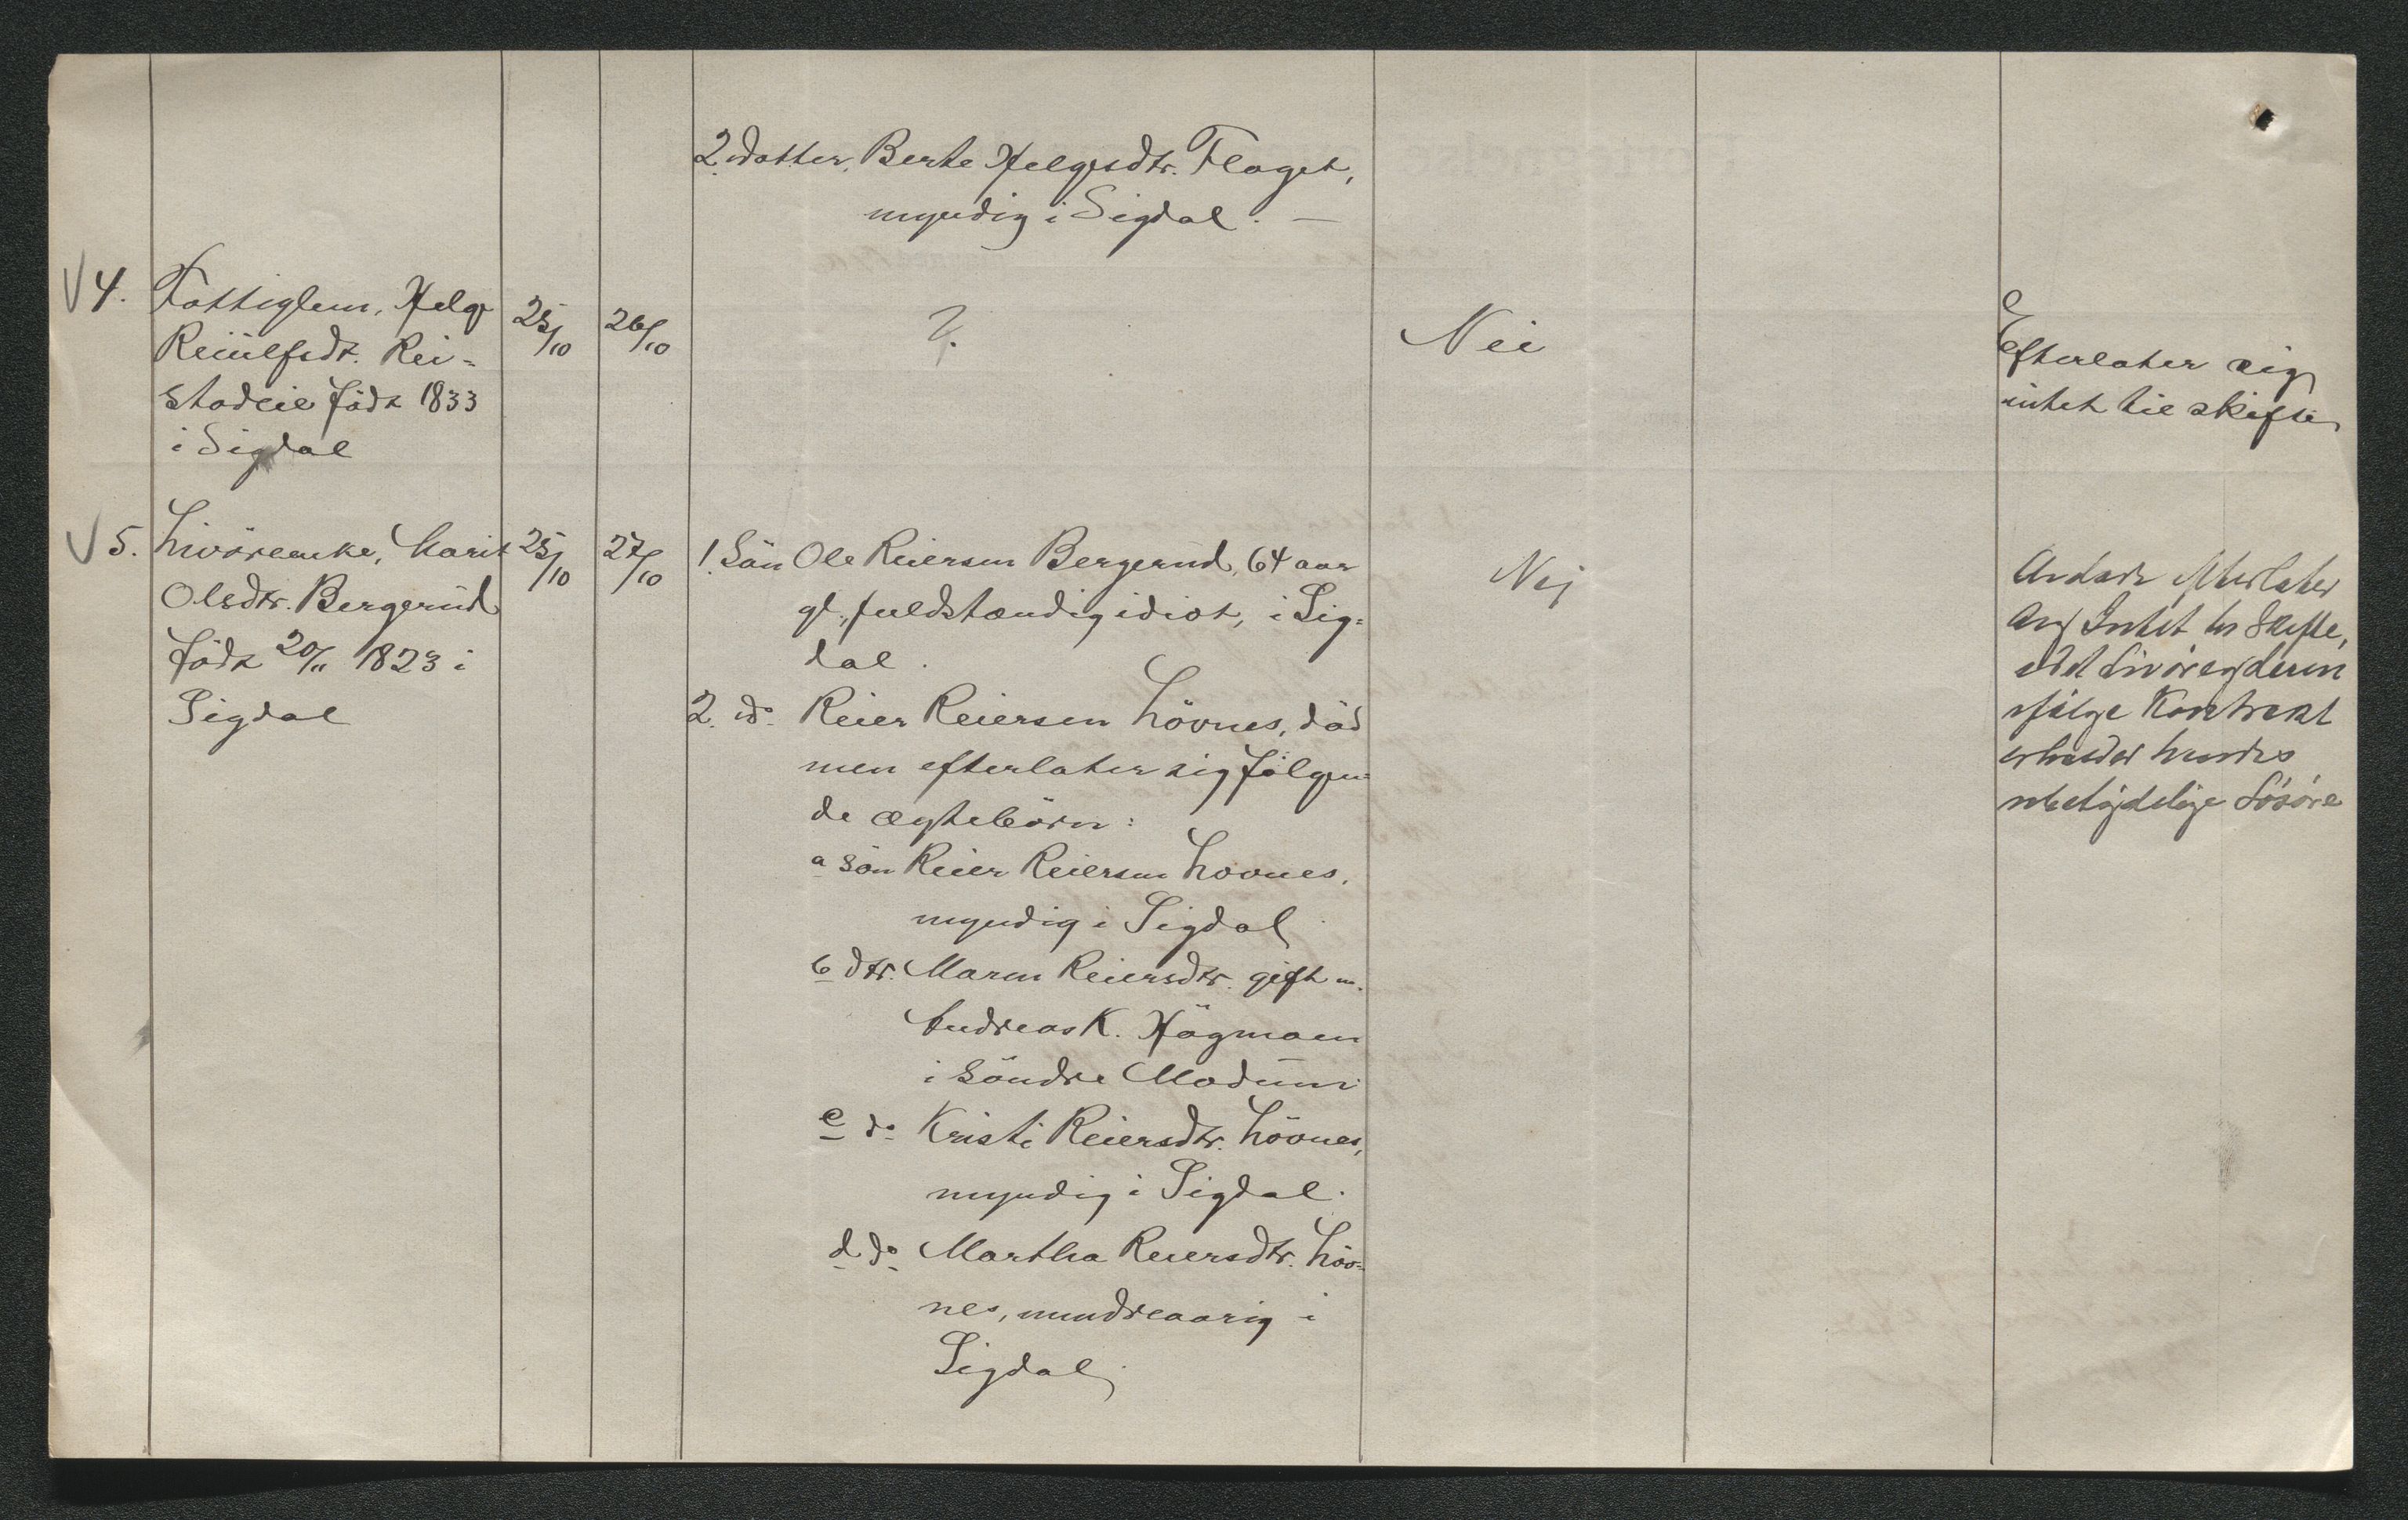 2. datter, Berte Helgesdtr. Flaget,
myndig i Sigdal. —
V 4. Fattiglem, Helge
Reiulfsdt. Rei-
stadeie född 1833
i Sigdal
25/10
26/10
?
Nei
Efterlater sig
intet til skifte
V 5. Livöreenke, Marit
Olsdtr. Bergerud
född 20/11 1823 i
Sigdal
25/10
27/10
1. Sön Ole Reiersen Bergerud, 64 aar
gl., fuldstændig idiot, i Sig-
dal.
2. do Reier Reiersen Lövnes, död
men efterlater sig fölgen-
de ægtebörn:
a sön Reier Reiersen Lövnes,
myndig i Sigdal
b dtr. Maren Reiersdtr. gift m.
Andreas K. Hägmaen
i Söndre Modum
c do Kristi Reiersdtr. Lövnes,
myndig i Sigdal.
d do Martha Reiersdtr. Löv-
nes, mindreaarig i
Sigdal
Nej
Avdøde efterlater
sig Intet til Skifte,
idet
ifølge Kontrakt
erholder hendes
ubetydelige Løsøre